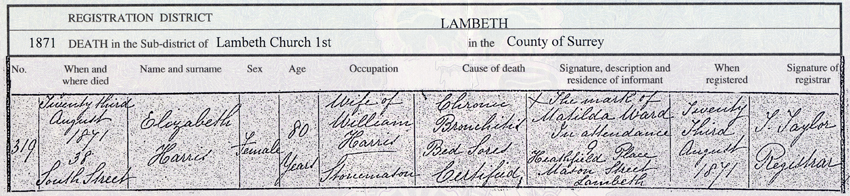 REGISTRATION DISTRICT LAMBETH
1871 DEATH in the Sub-district of Lambeth Church 1st in the County of Surrey
No. When and where died Name and surname Sex Age Occupation Cause of death Signature, description and residence of informant When registered Signature of registrar
319
Twenty third
August
1871
38
South Street
Elizabeth
Harris
Female
80
Years
Wife of
William
Harris
Stonemason
Chronic
Bronchitis
Bed Sores
Certified
X The mark of
Matilda Ward
In attendance
9
Heathfield Place
Mason Street
Lambeth
Twenty
Third
August
1871
T. Taylor
Registrar